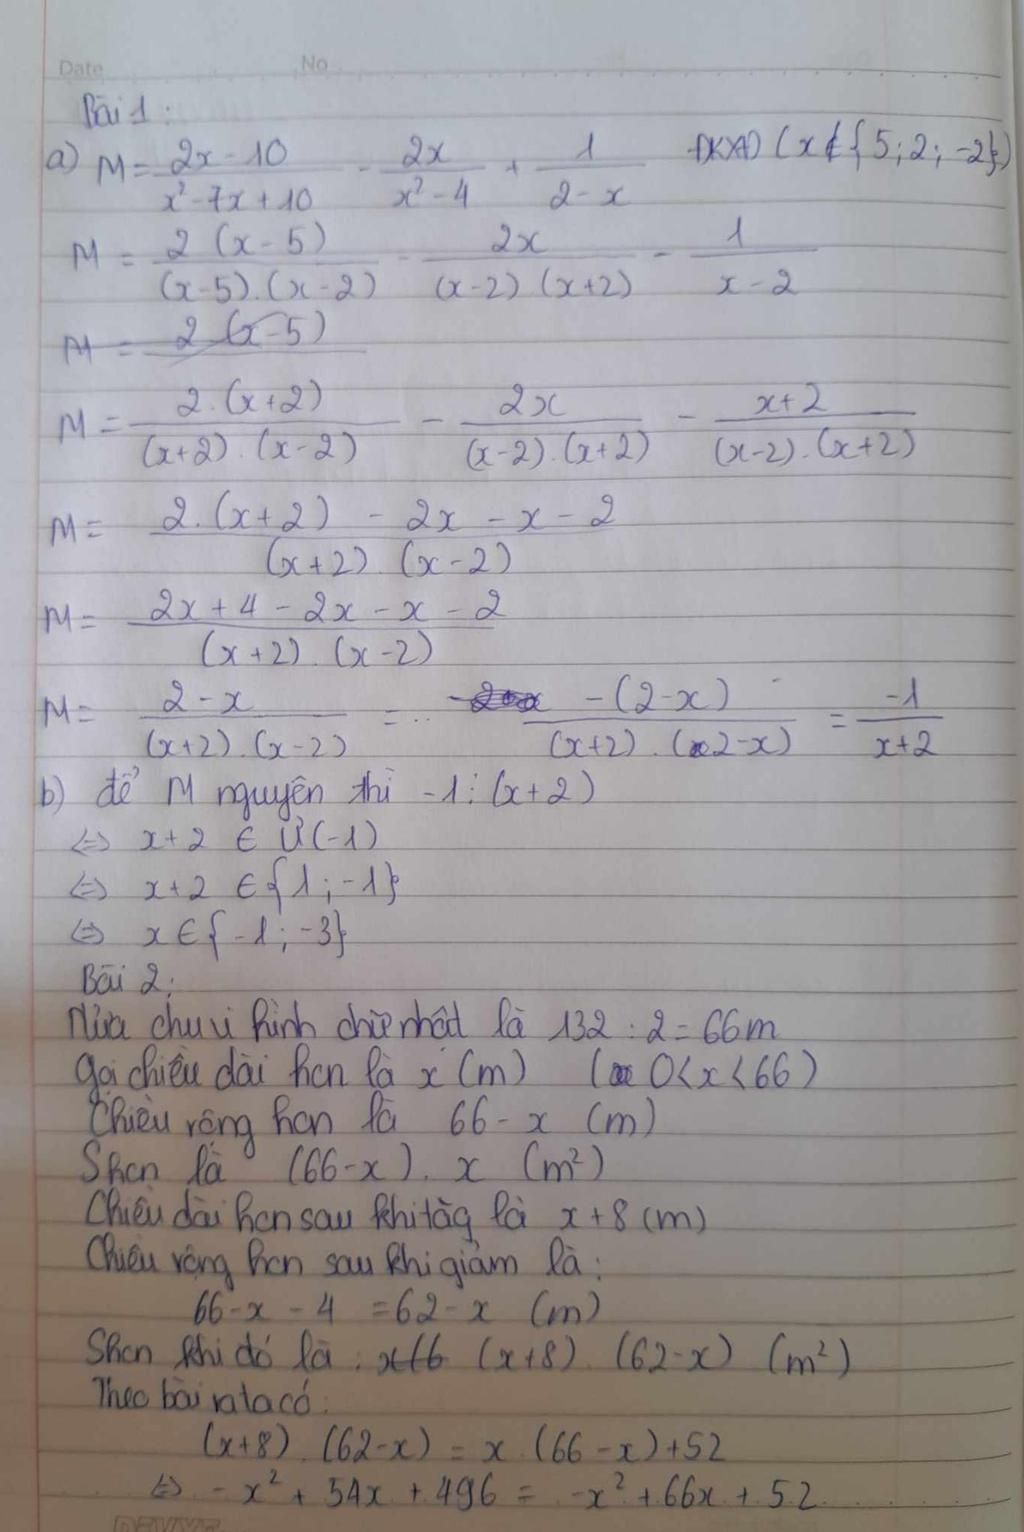 Date No
Bài 1:
a) M = (2x - 10)/(x² - 7x + 10) - 2x/(x² - 4) + 1/(2 - x) ĐKXĐ (x ∉ {5; 2; -2})
M = 2 (x - 5)/((x-5).(x-2)) - 2x/((x-2) (x+2)) - 1/(x - 2)
M = 2 (x-5)
M = 2.(x+2)/((x+2).(x-2)) - 2x/((x-2).(x+2)) - (x+2)/((x-2).(x+2))
M = (2.(x+2) - 2x - x - 2)/((x+2) (x-2))
M = (2x + 4 - 2x - x - 2)/((x+2).(x-2))
M = (2 - x)/((x+2).(x-2)) = -(2-x)/((x+2).(2-x)) = -1/(x+2)
b) để M nguyên thì -1 ⋮ (x+2)
⇔ x+2 ∈ Ư(-1)
⇔ x+2 ∈ {1; -1}
⇔ x ∈ {-1; -3}
Bài 2:
Nửa chu vi hình chữ nhật là 132 : 2 = 66m
Gọi chiều dài hcn là x (m) (0 < x < 66)
Chiều rộng hcn là 66 - x (m)
Shcn là (66-x). x (m²)
Chiều dài hcn sau khi tăg là x+8 (m)
Chiều rộng hcn sau khi giảm là:
66 - x - 4 = 62 - x (m)
Shcn khi đó là: (x+8). (62-x) (m²)
Theo bài ra ta có:
(x+8). (62-x) = x.(66-x)+52
⇔ -x² + 54x + 496 = -x² + 66x + 52